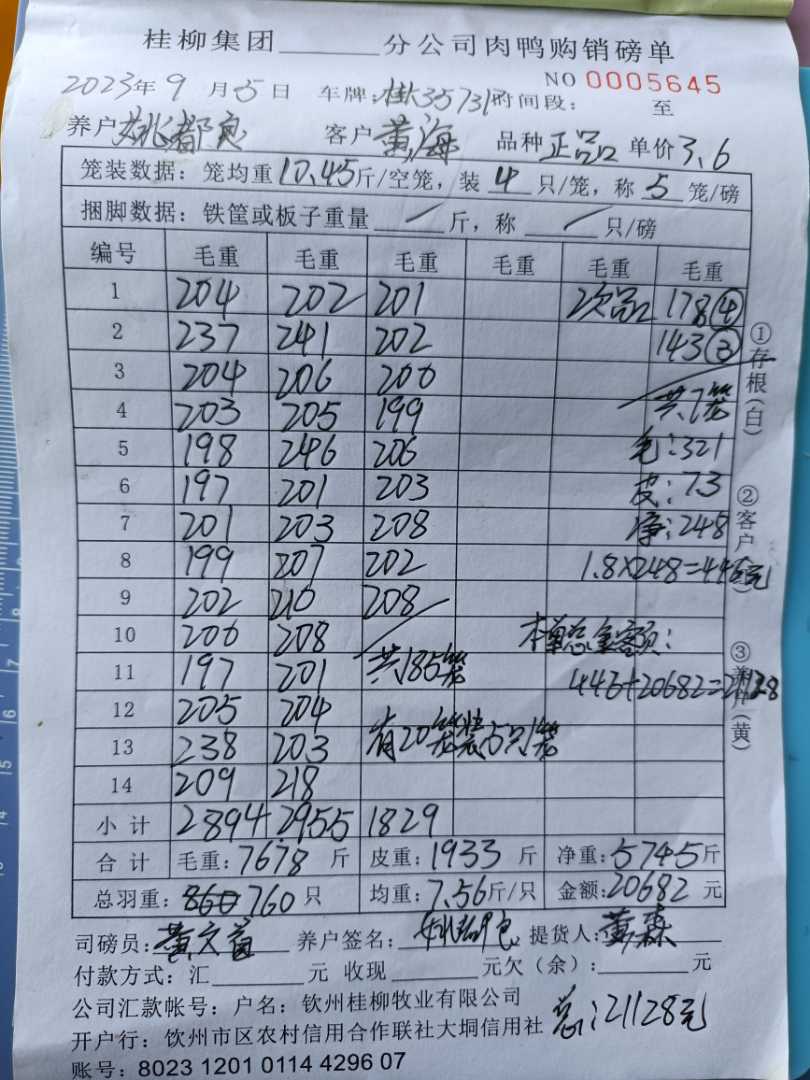 桂柳集团______分公司肉鸭购销磅单
NO 0005645
2023年9月5日 车牌:桂35731时间段: 至
养户姚都良 客户黄海 品种正品 单价3.6
笼装数据:笼均重10.45斤/空笼,装4只/笼,称5笼/磅
捆脚数据:铁筐或板子重量 / 斤,称 / 只/磅
编号 毛重 毛重 毛重 毛重 毛重 毛重
1 204 202 201 次品 178④
2 237 241 202 143③
3 204 206 200 共7笼
4 203 205 199
5 198 246 206 毛:321
6 197 201 203 皮:73
7 201 203 208 净:248
8 199 207 202 1.8×248=446元
9 202 210 208
10 200 208 本单总金额:
11 197 201 共185笼 446+20682=21128
12 205 204
13 238 203 有20笼装5只/笼
14 209 218
小计 2894 2955 1829
合计 毛重:7678斤 皮重:1933斤 净重:5745斤
总羽重:760只 均重:7.56斤/只 金额:20682元
司磅员:黄文富 养户签名:姚都良 提货人:黄森
付款方式:汇______元 收现______元欠(余):______元
公司汇款帐号:户名:钦州桂柳牧业有限公司
开户行:钦州市区农村信用合作联社大垌信用社 总:21128元
账号:8023 1201 0114 4296 07
①存根(白)
②客户
③养户(黄)